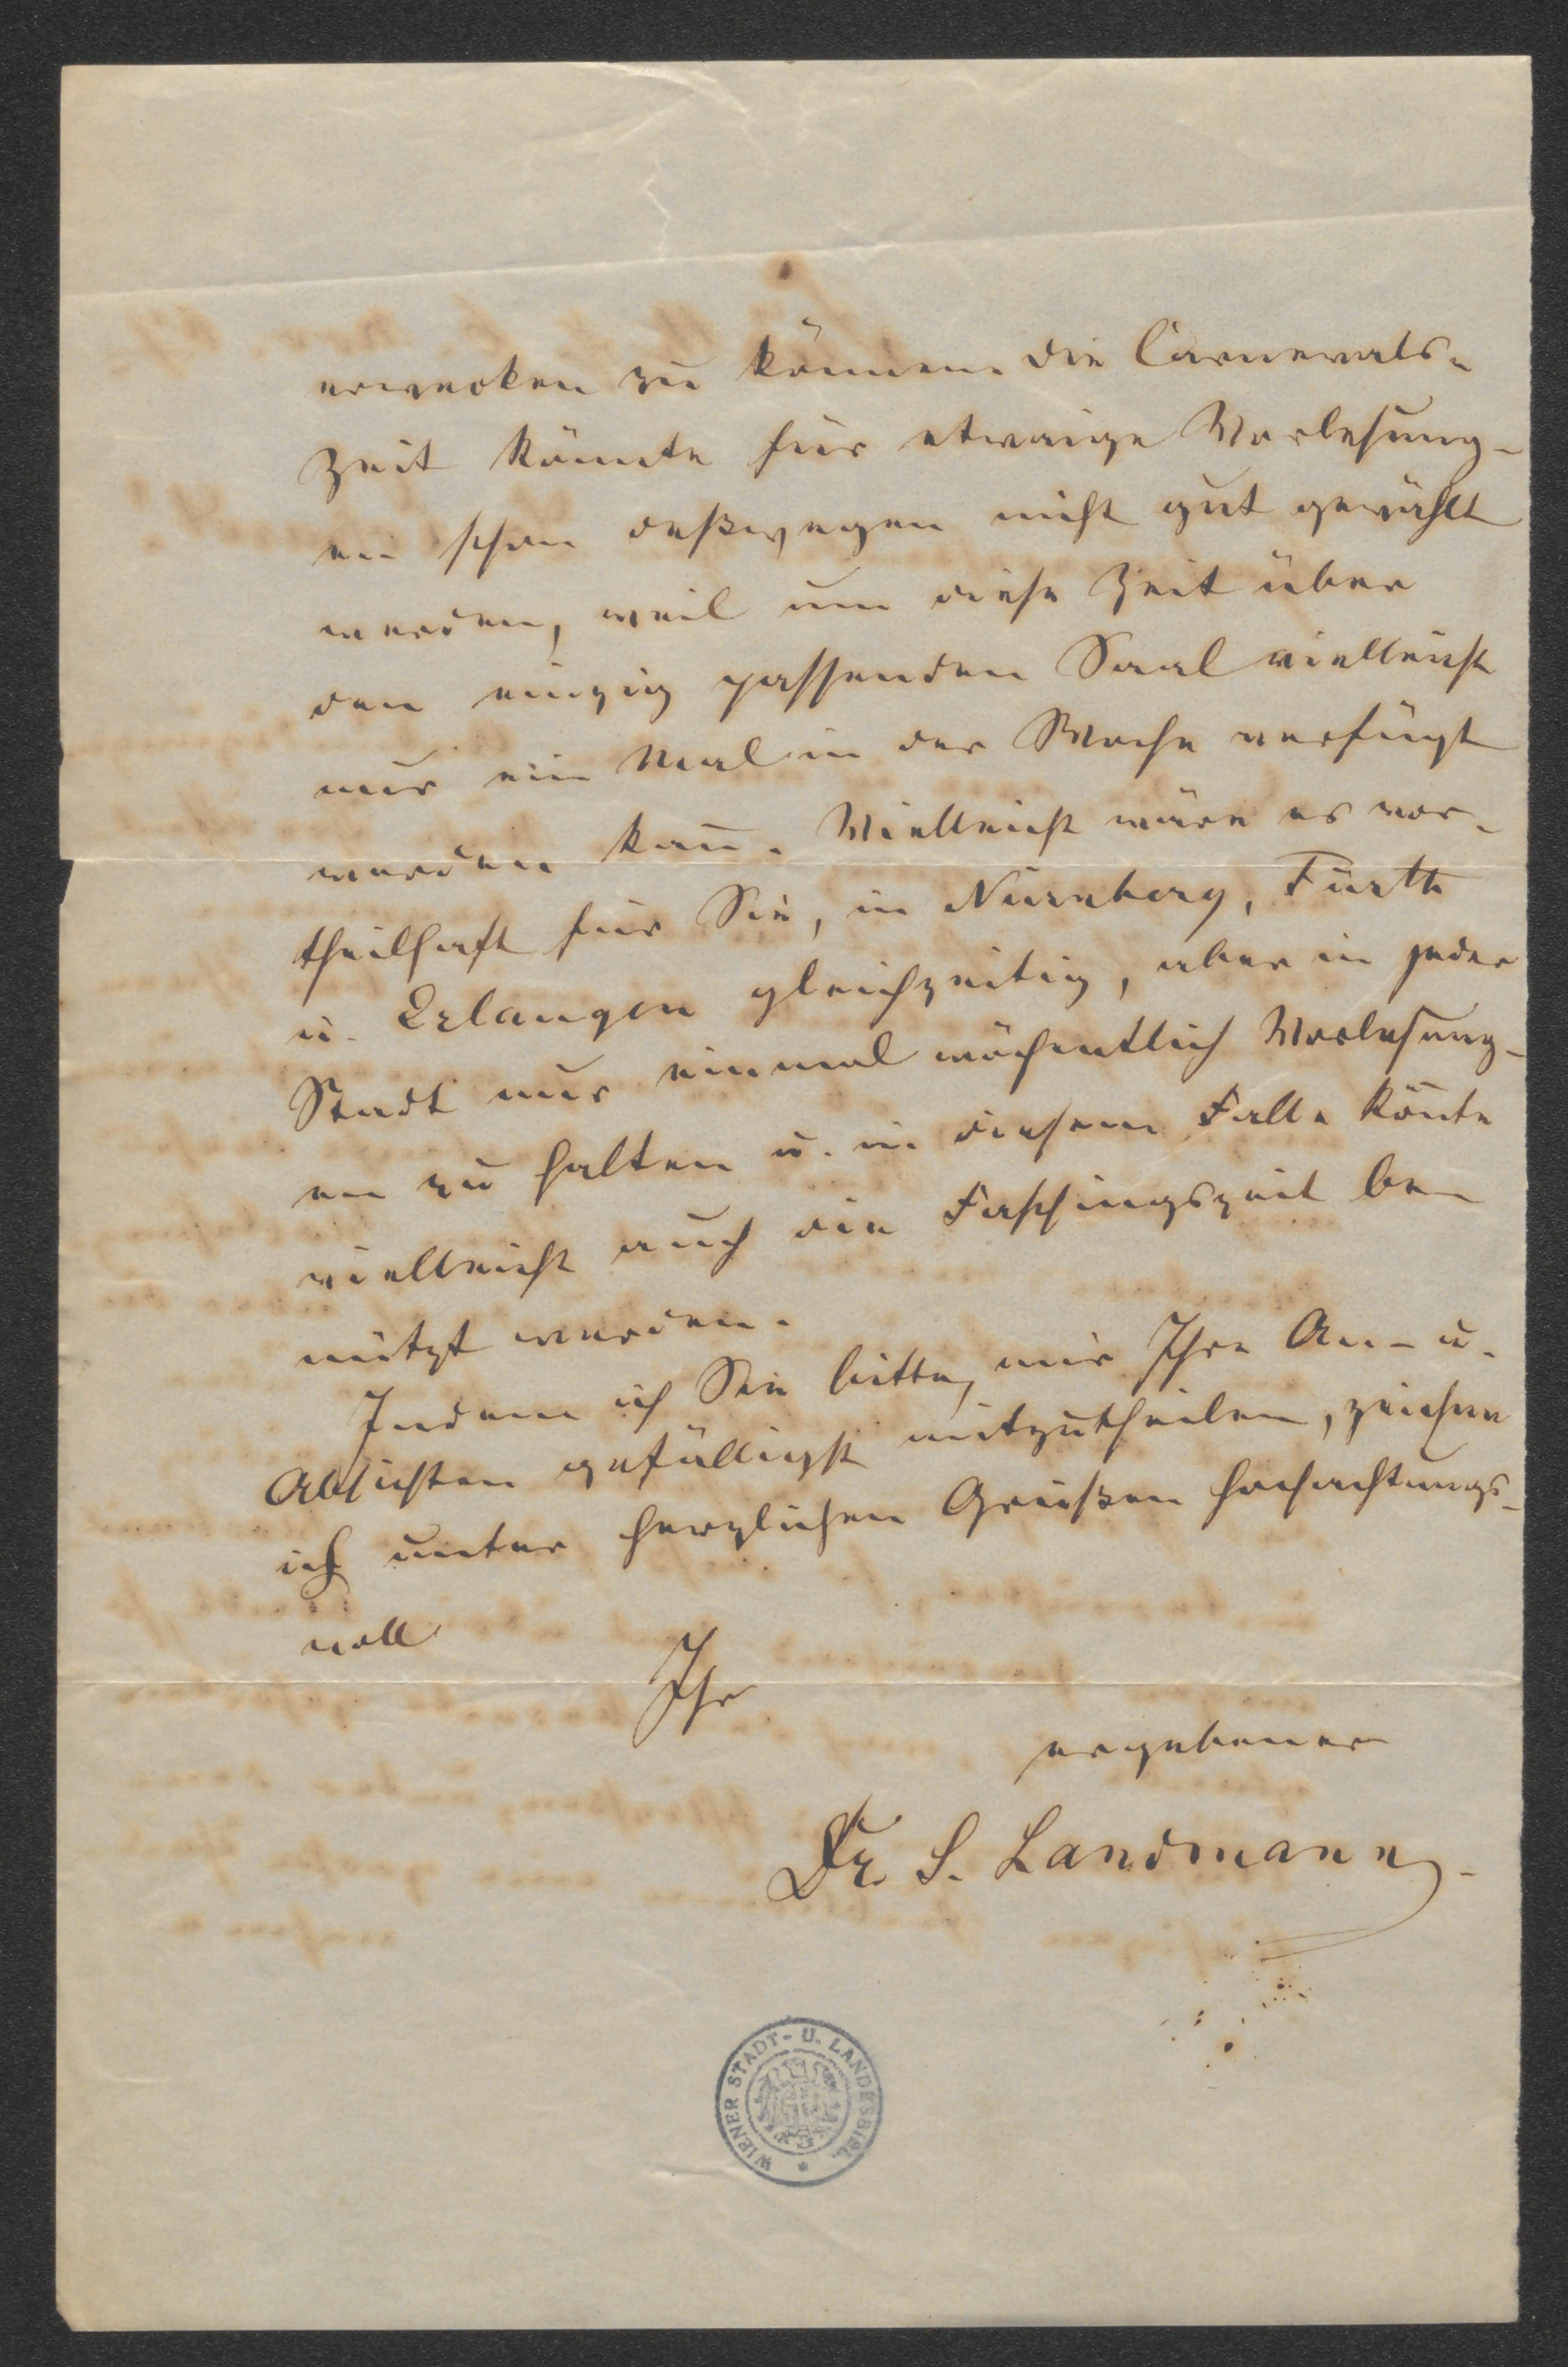 erwecken zu können. Die Carnevals-
Zeit könnte für etwaige Vorlesung-
en schon deßwegen nicht gut gewählt
werden, weil um diese Zeit über
den einzig passenden Saal vielleicht
nur ein Mal in der Woche verfügt
werden kann̄. Vielleicht wäre es vor-
theilhaft für Sie, in Nürnberg, Fürth
u. Erlangen gleichzeitig, aber in jeder
Stadt nur einmal wöchentlich Vorlesung-
en zu halten u. in diesem Falle könte
vielleicht auch die Faschingszeit be-
nützt werden.
Indem ich Sie bitte, mir Ihre An- u.
Absichten gefälligst mitzutheilen, zeichne
ich unter herzlichen Grüßen hochachtungs-
voll
Ihr
ergebener
Dr. S. Landmann.
WIENER STADT- U. LANDESBIBL.